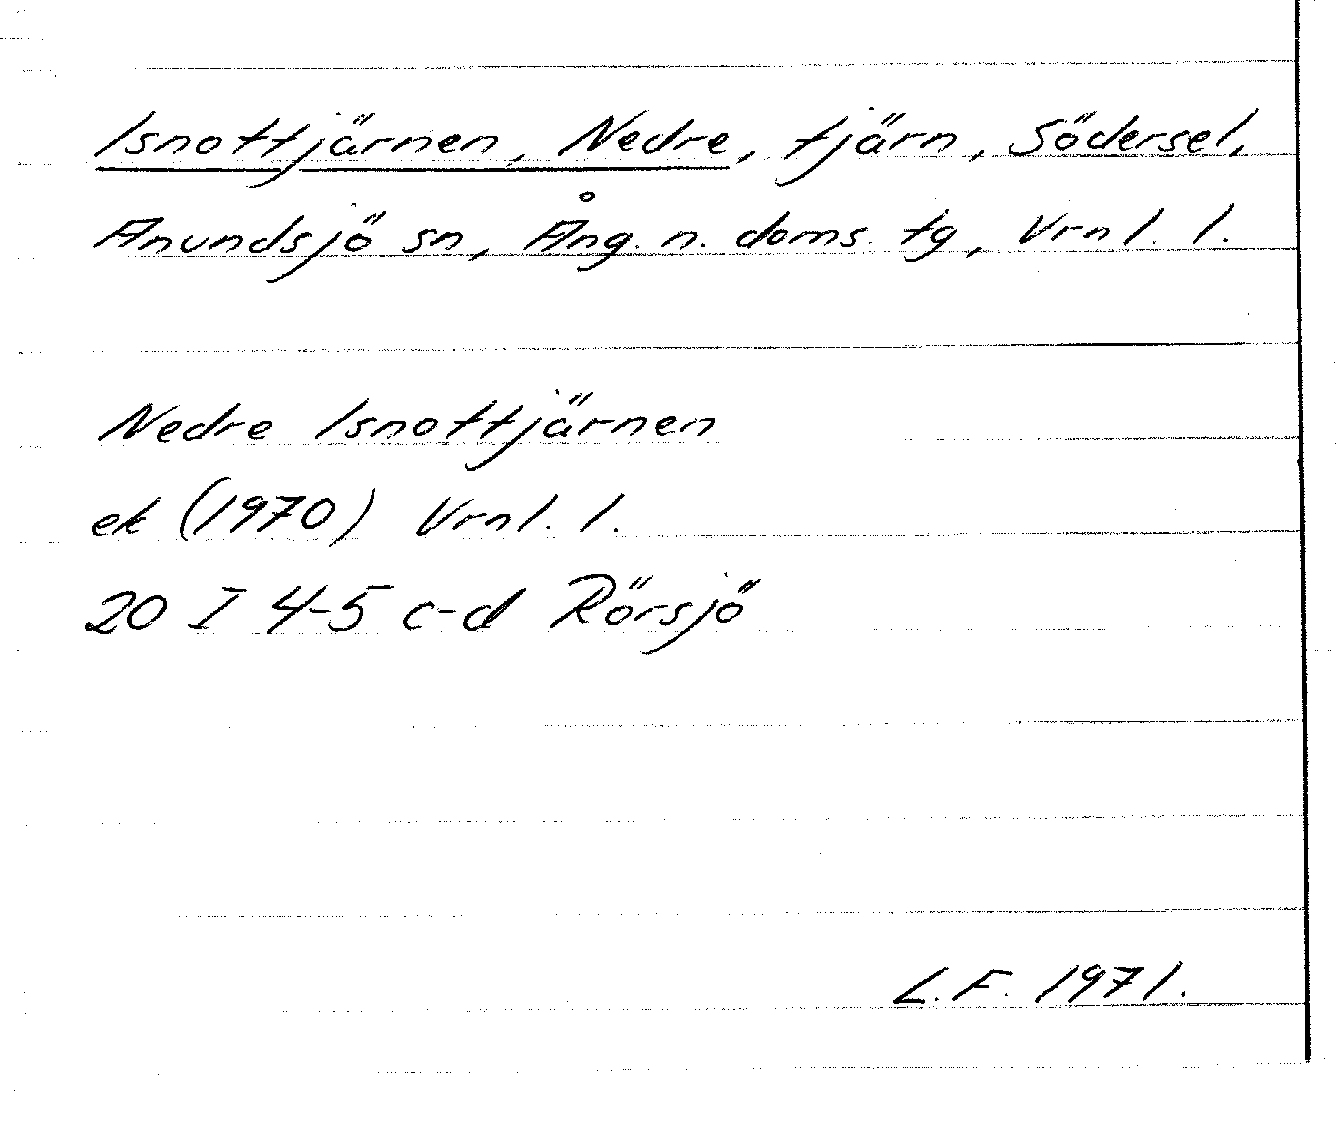 Isnottjärnen, Nedre, tjärn, Södersel,
Anundsjö sn, Ång. n. doms. tg, Vrnl. l.
Nedre Isnottjärnen
ek (1970) Vrnl. l.
20 I 4-5 c-d Rörsjö
L. F. 1971.